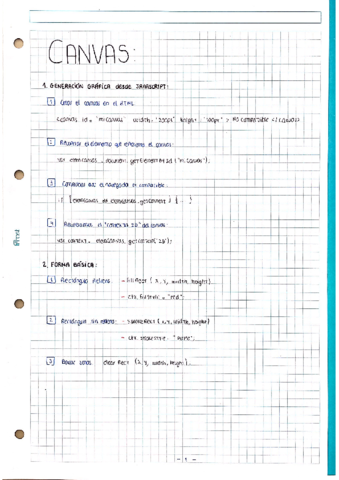 CANVAS:
1. GENERACIÓN GRÁFICA DESDE JAVASCRIPT:
1 Crear el canvas en el HTML.
<canvas id = "micanvas" width= "200px" height= "100px" > No compatible </canvas>
2 Recuperar el elemento que el canvas:
var elemcanvas = document.getElementById("micanvas");
3 Comprobar que el navegador es compatible:
if (elemcanvas && elemcanvas.getContext) { ... }
4 Recuperamos el "contexto 2D" del canvas:
var context = elemcanvas.getContext("2D");
2. FORMA BÁSICA:
1 Rectángulo relleno: - fillRect (x, y, width, height)
- ctx.fillStyle = "red";
2 Rectángulo sin relleno: - strokeRect (x, y, width, height)
- ctx.strokeStyle =
3 Borrar zonas: clearRect (x, y, width, height).
- 1 -